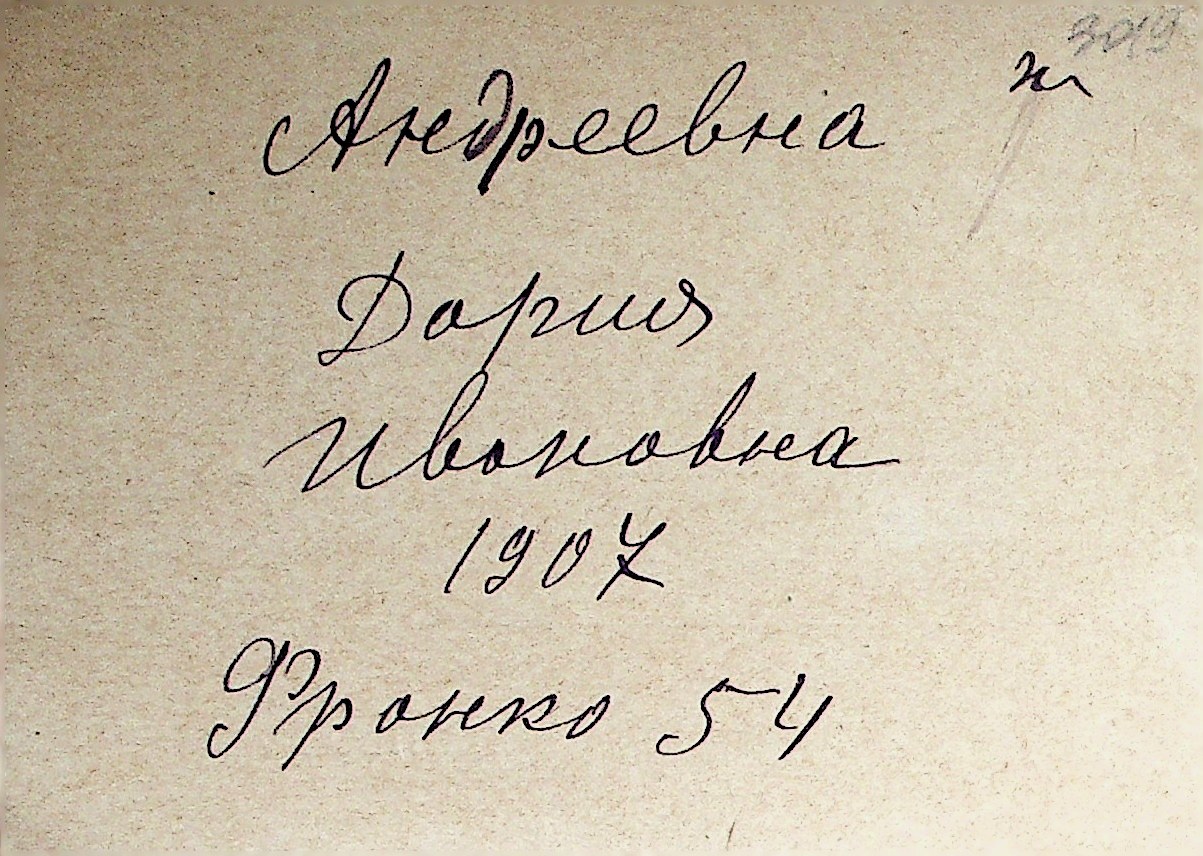 3019
ж
Андреевна
Дария
Ивановна
1907
Франко 54